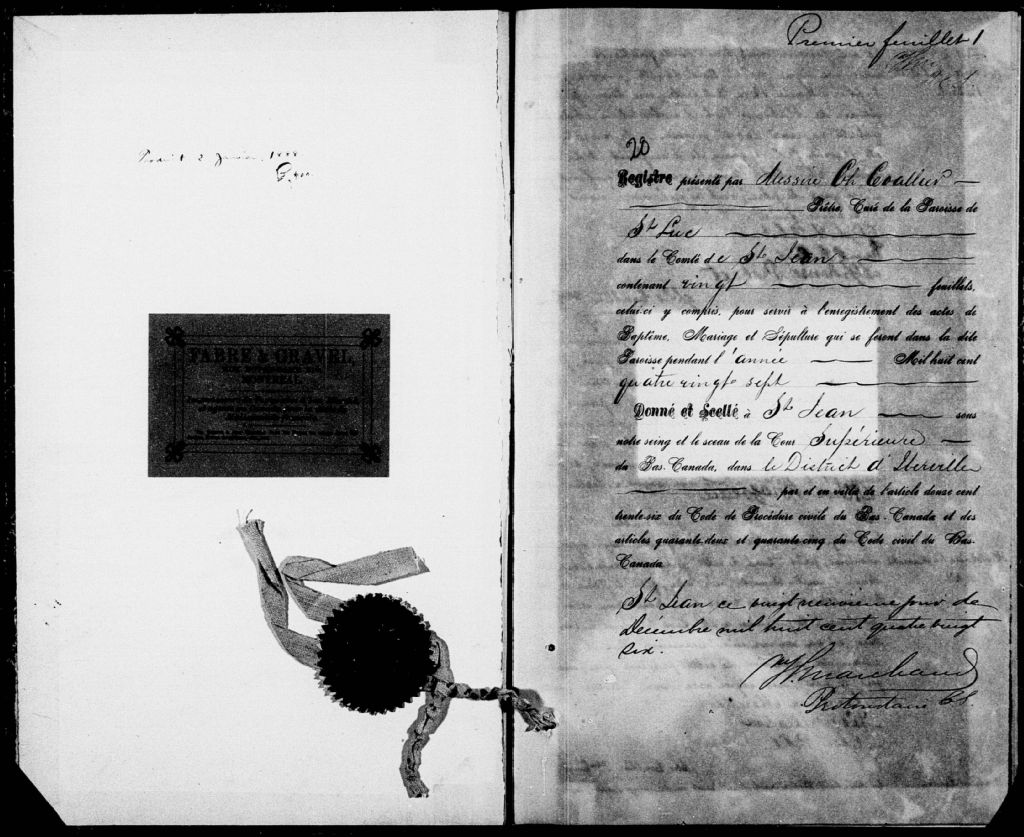 Produit 2 Janvier 1888
FABRE & GRAVEL,
MONTREAL
Premier feuillet 1
28
Registre présenté par Messire Ch Coallier
Prêtre, Curé de la Paroisse de
St Luc
dans le Comté de St Jean
contenant vingt feuillets,
celui-ci y compris, pour servir à l'enregistrement des actes de
Baptême, Mariage et Sépulture qui se feront dans la dite
Paroisse pendant l'année Mil huit cent
quatre vingt sept
Donné et Scellé à St Jean sous
notre seing et le sceau de la Cour Supérieure
du Bas-Canada, dans le District d'Iberville
par et en vertu de l'article douze cent
trente-six du Code de Procédure civile du Bas-Canada et des
articles quarante-deux et quarante-cinq du Code civil du Bas-
Canada
St Jean ce vingt neuvième jour de
Décembre mil huit cent quatre vingt
six.
Marchand
Protonotaire C.S.